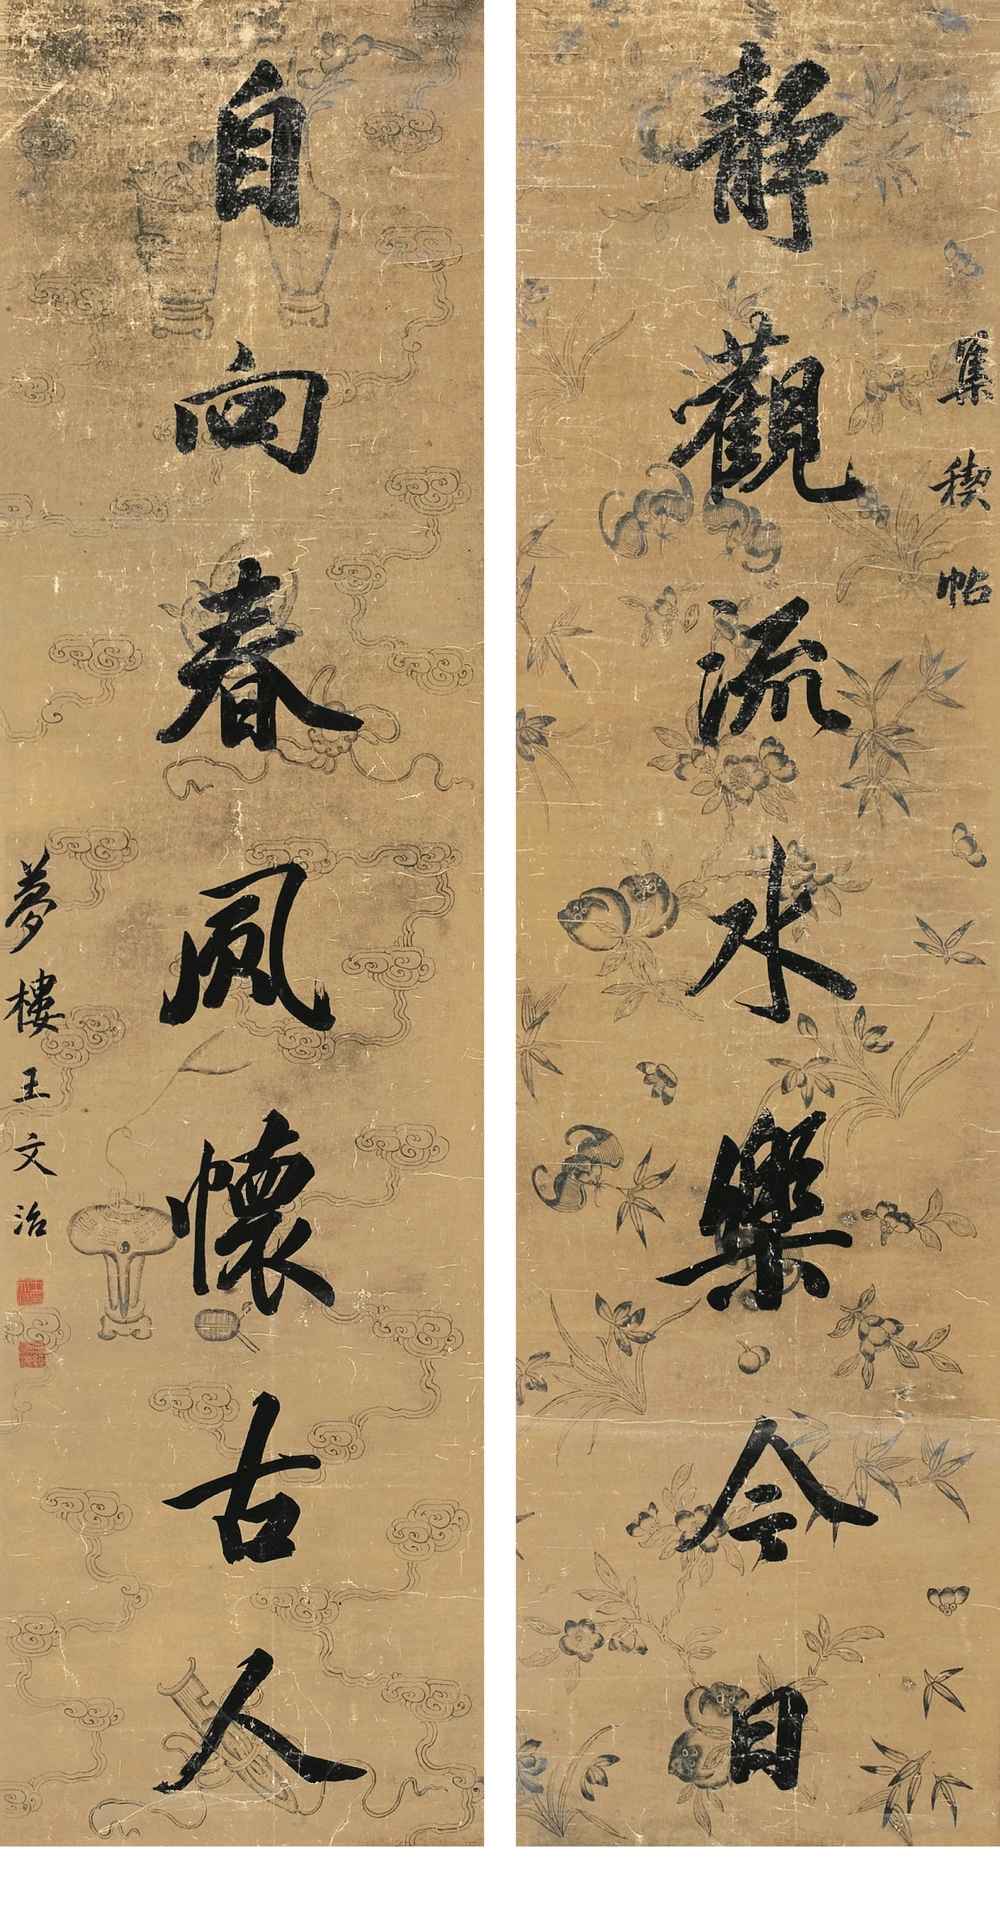 集稧帖
靜觀流水樂今日
自向春風懷古人
夢樓王文治